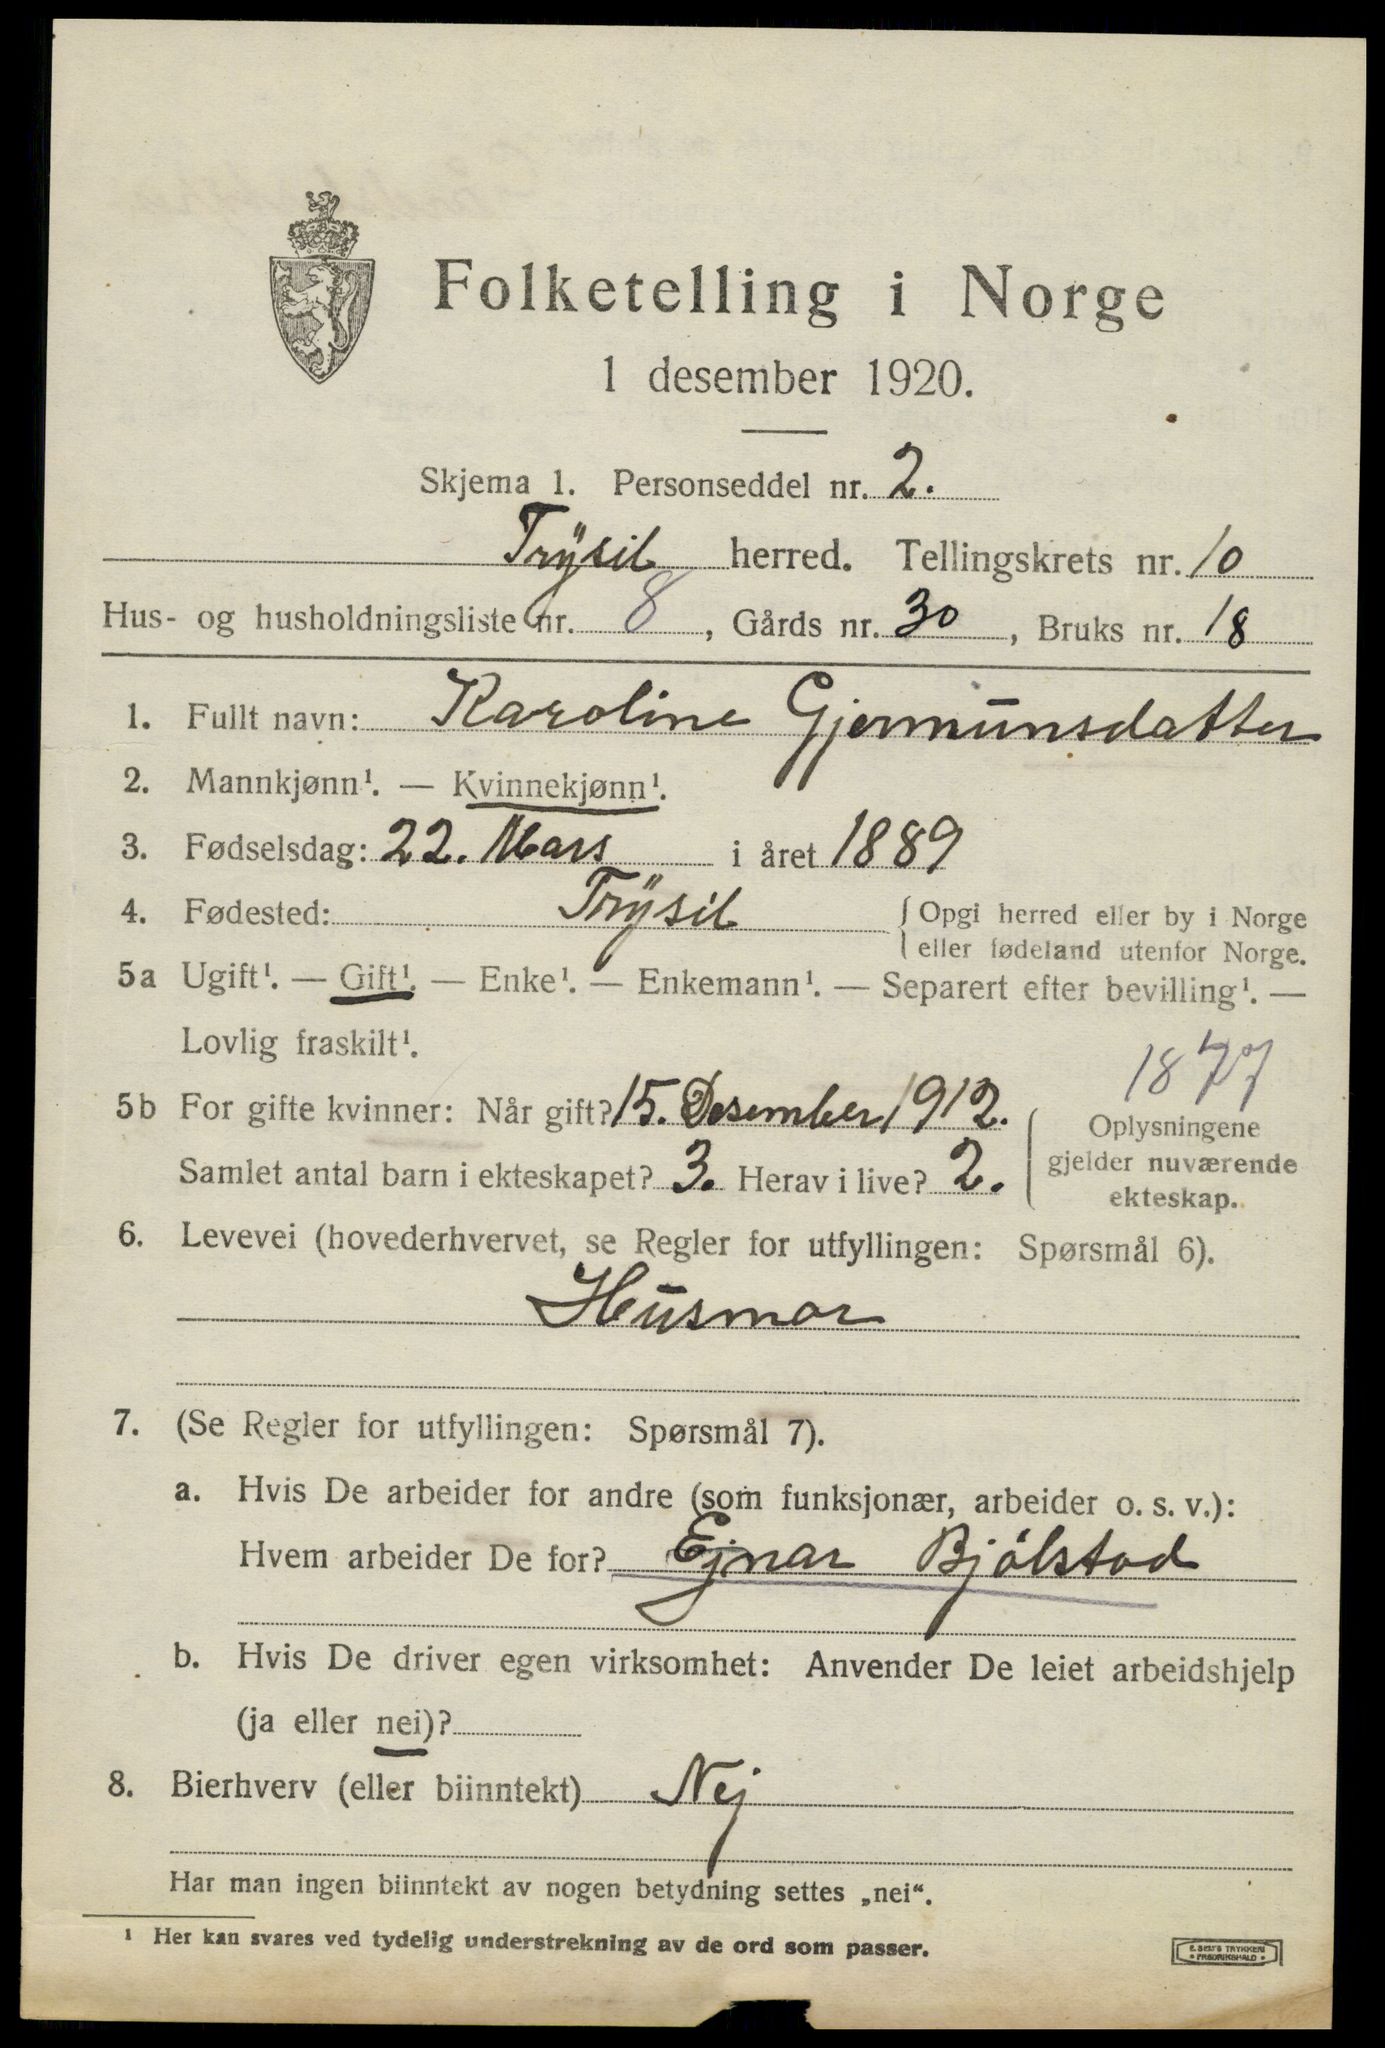 Folketelling i Norge
1 desember 1920.
Skjema 1. Personseddel nr. 2.
Trÿsil herred. Tellingskrets nr. 10
Hus- og husholdningsliste nr. 8, Gårds nr. 30, Bruks nr. 18
1. Fullt navn: Karoline Gjermunsdatter
2. Mannkjønn¹. — Kvinnekjønn¹.
3. Fødselsdag: 22. Mars i året 1889
4. Fødested: Trÿsil { Opgi herred eller by i Norge
eller fødeland utenfor Norge.
5a Ugift¹. — Gift¹. — Enke¹. — Enkemann¹. — Separert efter bevilling¹. —
Lovlig fraskilt¹.
1877
5b For gifte kvinner: Når gift? 15. Desember 1912.
Samlet antal barn i ekteskapet? 3. Herav i live? 2.
Oplysningene
gjelder nuværende
ekteskap.
6. Levevei (hovederhvervet, se Regler for utfyllingen: Spørsmål 6).
Husmor
7. (Se Regler for utfyllingen: Spørsmål 7).
a. Hvis De arbeider for andre (som funksjonær, arbeider o. s. v.):
Hvem arbeider De for? Ejnar Bjølstad
b. Hvis De driver egen virksomhet: Anvender De leiet arbeidshjelp
(ja eller nei)?
8. Bierhverv (eller biinntekt) Nej
Har man ingen biinntekt av nogen betydning settes „nei“.
¹ Her kan svares ved tydelig understrekning av de ord som passer.
E. SEM'S TRYKKERI
• FREDRIKSHALD •